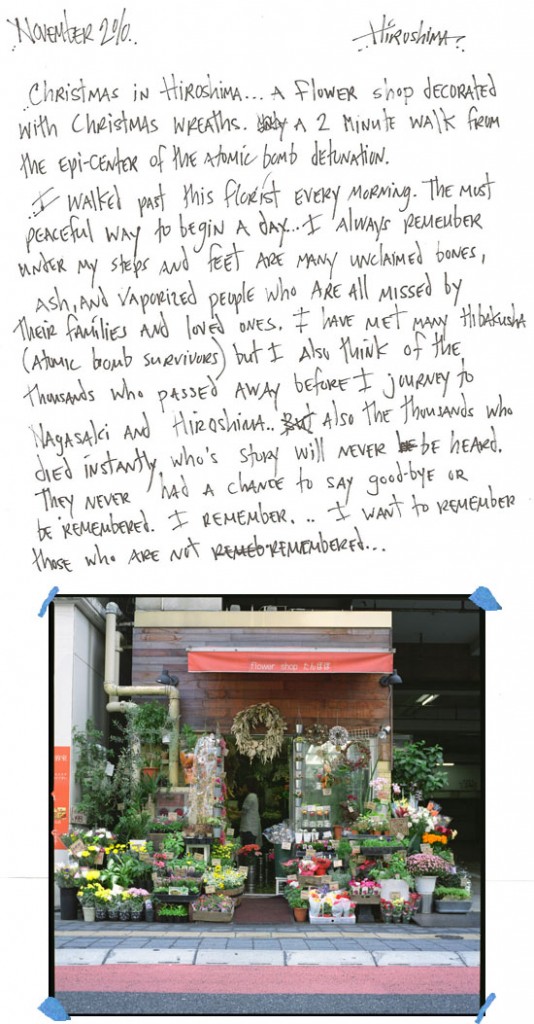 NOVEMBER 2010..
HIROSHIMA..
CHRISTMAS IN HIROSHIMA... A flower shop decorated
with CHRISTMAS WREATHS. A 2 MINUTE WALK FROM
THE EPI-CENTER OF THE ATOMIC bomb detunation.
I WALKED PAST this florist EVERY MORNING. THE MOST
PEACEFUL WAY to begin A DAY... I ALWAYS REMEMBER
UNDER MY STEPS AND FEET ARE MANY UNCLAIMED BONES,
ASH, AND VAPORIZED PEOPLE WHO ARE All MISSED by
THEIR FAMILIES AND LOVED ONES. I HAVE MET MANY HIBAKUSHA
(ATOMIC bomb SURVIVORS) but I Also THINK OF THE
THOUSANDS WHO PASSED AWAY BEFORE I JOURNEY TO
NAGASAKI AND HIROSHIMA.. Also THE THOUSANDS WHO
DIED INSTANTLY, WHO'S STORY Will NEVER BE HEARD.
THEY NEVER HAD A CHANCE TO SAY good-bye OR
BE REMEMBERED. I REMEMBER. .. I WANT TO REMEMBER
THOSE WHO ARE NOT REMEMBERED...
flower shop たんぽぽ